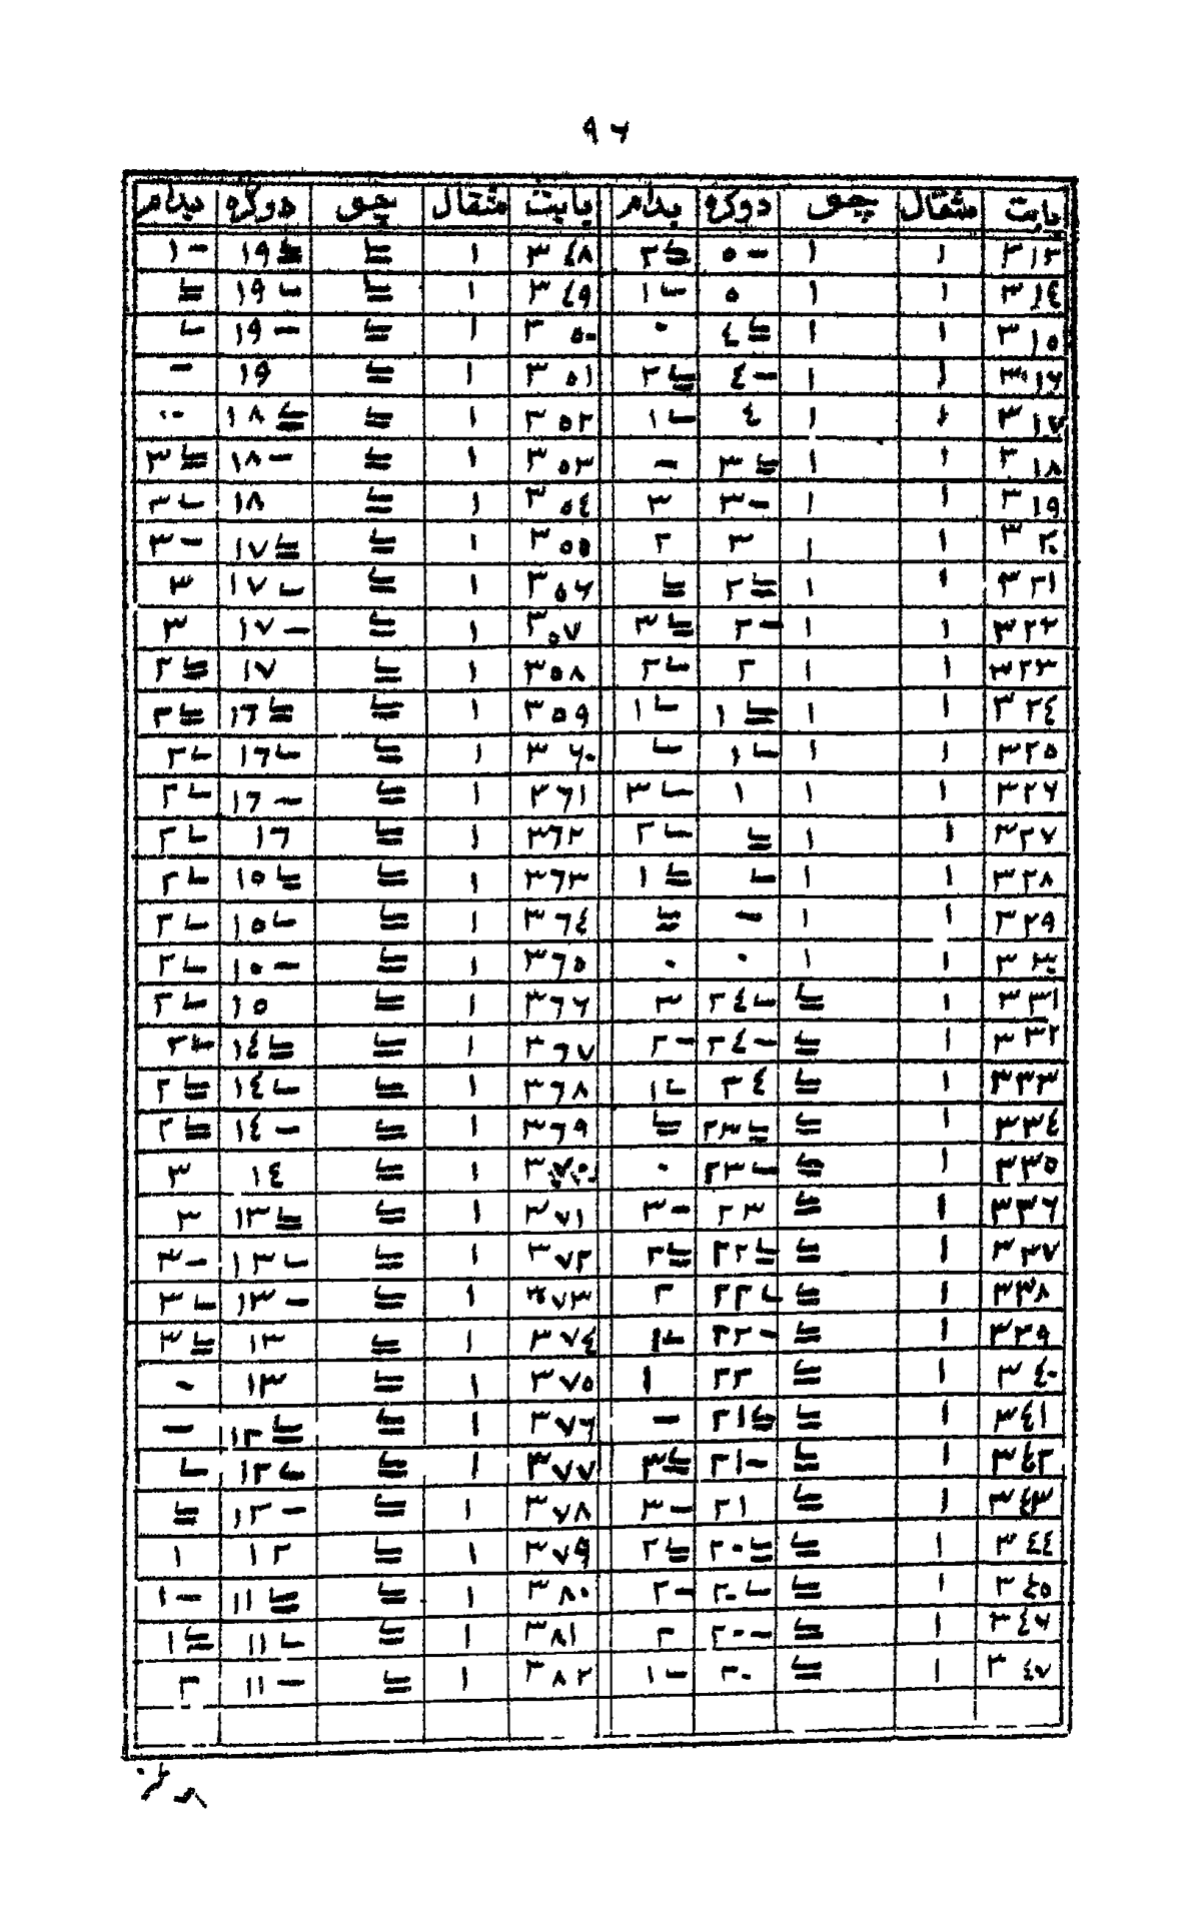 ٩٦
بابت مثقال چو دوكره بدام بابت مثقال چو دوكره بدام
٣١٣ ١ ١ ٥- ٢≡ ٣٤٨ ١ ≡ ١٩≡ ١-
٣١٤ ١ ١ ٥ ١ٮ ٣٤٩ ١ ≡ ١٩ٮ ≡
٣١٥ ١ ١ ٤≡ ٠ ٣٥٠ ١ ≡ ١٩- ٮ
٣١٦ ١ ١ ٤- ٢≡ ٣٥١ ١ ≡ ١٩ -
٣١٧ ١ ١ ٤ ١ٮ ٣٥٢ ١ ≡ ١٨≡ ٠-
٣١٨ ١ ١ ٣≡ - ٣٥٣ ١ ≡ ١٨- ٣≡
٣١٩ ١ ١ ٣- ٣ ٣٥٤ ١ ≡ ١٨ ٣ٮ
٣٢٠ ١ ١ ٣ ٢ ٣٥٥ ١ ≡ ١٧≡ ٣-
٣٢١ ١ ١ ٢≡ ≡ ٣٥٦ ١ ≡ ١٧ٮ ٣
٣٢٢ ١ ١ ٢- ٣≡ ٣٥٧ ١ ≡ ١٧- ٣
٣٢٣ ١ ١ ٢ ٢ٮ ٣٥٨ ١ ≡ ١٧ ٢≡
٣٢٤ ١ ١ ١≡ ١ٮ ٣٥٩ ١ ≡ ١٦≡ ٢≡
٣٢٥ ١ ١ ١ٮ ٮ ٣٦٠ ١ ≡ ١٦ٮ ٢ٮ
٣٢٦ ١ ١ ١ ٣ٮ ٣٦١ ١ ≡ ١٦- ٢ٮ
٣٢٧ ١ ١ ≡ ٢ٮ ٣٦٢ ١ ≡ ١٦ ٢ٮ
٣٢٨ ١ ١ ٮ ١≡ ٣٦٣ ١ ≡ ١٥≡ ٢ٮ
٣٢٩ ١ ١ - ≡ ٣٦٤ ١ ≡ ١٥ٮ ٢ٮ
٣٣٠ ١ ١ ٠ ٠ ٣٦٥ ١ ≡ ١٥- ٢ٮ
٣٣١ ١ ≡ ٢٤ٮ ٣ ٣٦٦ ١ ≡ ١٥ ٢ٮ
٣٣٢ ١ ≡ ٢٤- ٢- ٣٦٧ ١ ≡ ١٤≡ ٢ٮ
٣٣٣ ١ ≡ ٢٤ ١ٮ ٣٦٨ ١ ≡ ١٤ٮ ٢≡
٣٣٤ ١ ≡ ٢٣≡ ≡ ٣٦٩ ١ ≡ ١٤- ٢≡
٣٣٥ ١ ≡ ٢٣ٮ ٠ ٣٧٠ ١ ≡ ١٤ ٣
٣٣٦ ١ ≡ ٢٣ ٣- ٣٧١ ١ ≡ ١٣≡ ٣
٣٣٧ ١ ≡ ٢٢≡ ٢≡ ٣٧٢ ١ ≡ ١٣ٮ ٣-
٣٣٨ ١ ≡ ٢٢ٮ ٢ ٣٧٣ ١ ≡ ١٣- ٣ٮ
٣٣٩ ١ ≡ ٢٢- ١ٮ ٣٧٤ ١ ≡ ١٣ ٣≡
٣٤٠ ١ ≡ ٢٢ ١ ٣٧٥ ١ ≡ ١٣ ٠
٣٤١ ١ ≡ ٢١≡ - ٣٧٦ ١ ≡ ١٢≡ -
٣٤٢ ١ ≡ ٢١- ٣≡ ٣٧٧ ١ ≡ ١٢ٮ ٮ
٣٤٣ ١ ≡ ٢١ ٣- ٣٧٨ ١ ≡ ١٢- ≡
٣٤٤ ١ ≡ ٢٠≡ ٢≡ ٣٧٩ ١ ≡ ١٢ ١
٣٤٥ ١ ≡ ٢٠ٮ ٢- ٣٨٠ ١ ≡ ١١≡ ١-
٣٤٦ ١ ≡ ٢٠- ٢ ٣٨١ ١ ≡ ١١ٮ ١≡
٣٤٧ ١ ≡ ٢٠ ١ٮ ٣٨٢ ١ ≡ ١١- ٢